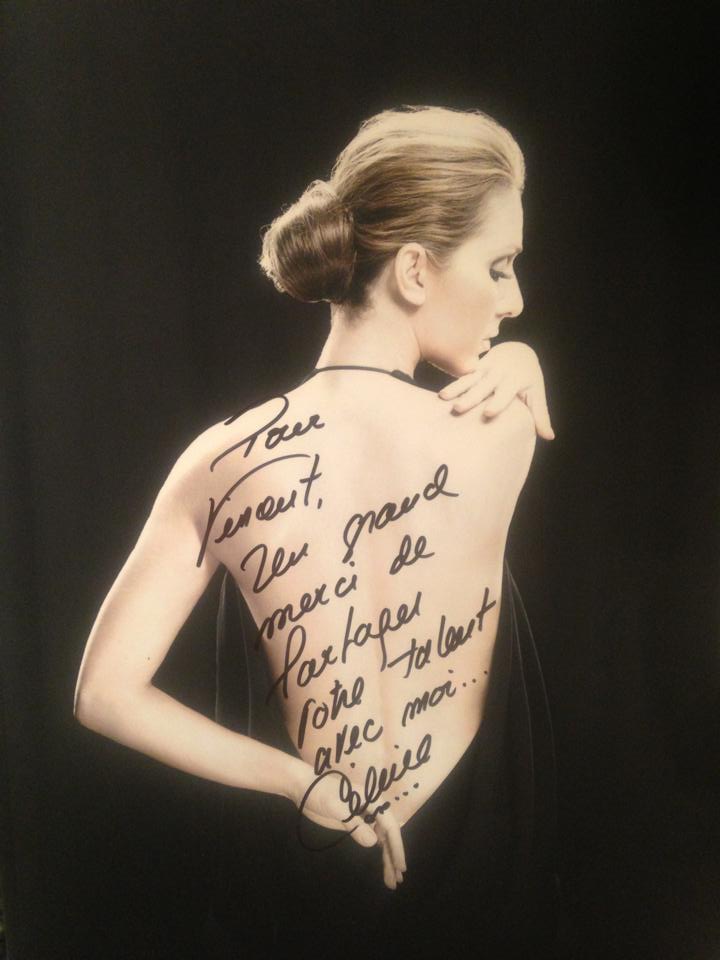 Pour
Vincent,
Un grand
merci de
Partager
votre talent
avec moi...
Céline
xx...